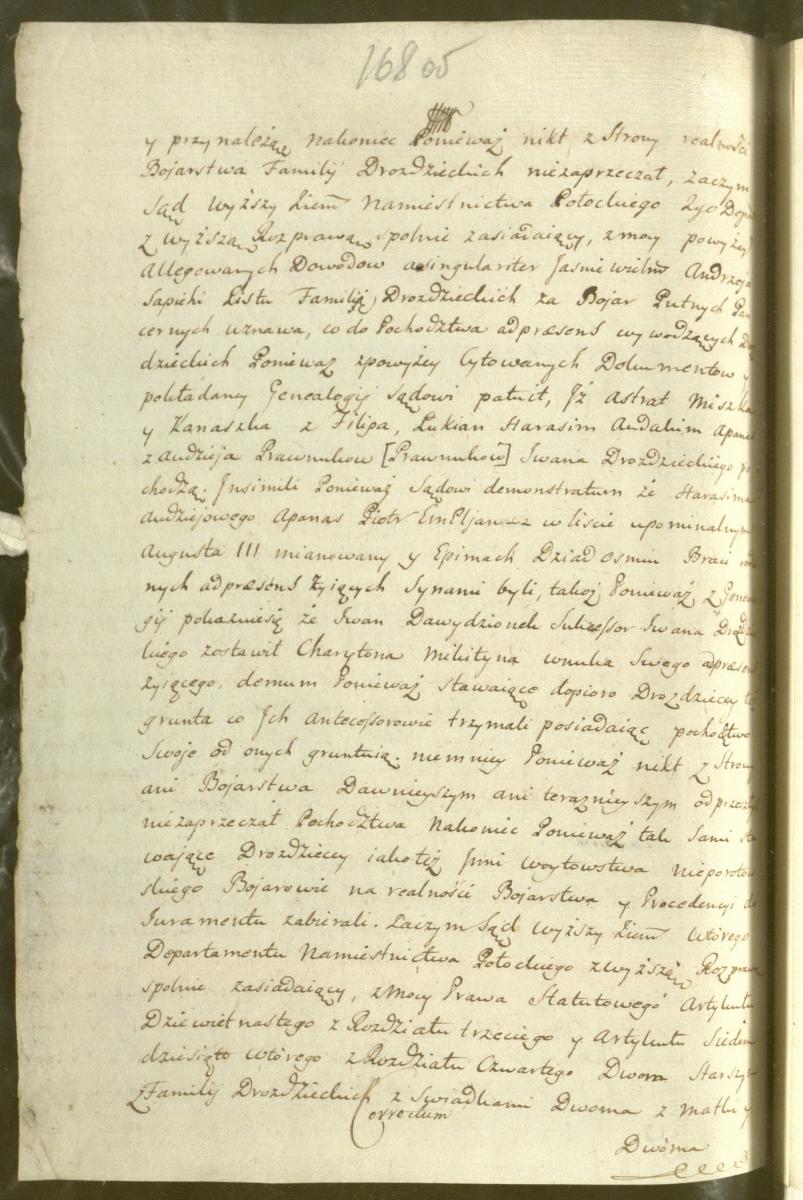 168 05
y przynależą nakoniec Ponieważ nikt z Strony realności
Bojarstwa Familij Drozdzieckich niezaprzeczał, zaczym
Sąd Wyższy Ziem̃ Namiestnictwa Połockiego 2go
z wyższą Rozprawą spolnie zasiadaiący, z mocy powyżey
Allegowanych Dowodow a singulariter Jaśnie Wielm̃ Andrzeja
Sapiehi Listu Familiją Drozdzieckich za Bojar Putnych Pan
cernych uznawa, co do Pochodztwa adpræsens wywodzących
dzieckich Ponieważ zpowyżey Cytowanych Dokumentow y
pokładaney Genealogij Sądowi patuit, Jż Astrat Miszka
y Kanaszka z Filipa, Łukian Harasim Audakim Apanas
z Audzieja Prawnukow [Prawnukow] Iwana Drozdzieckiego po
chodzą. Jnsimili Ponieważ Sądowi demonstratum że Harasima
Audziejowego Apanas Piotr Emiljan w liście upominalnym
Augusta III mianowany y Epimach Dziad osmiu Braci
nych adpræsens żyiących Synami byli, takoż Ponieważ z Genealo
gij pokaznięsię że Iwan Dawydzionek Sukcessor Iwana
kiego zostawił Charytona Mikityna wnuka Swego adpræsens
żyiącego. demum Ponieważ stawaiące dopioro Drozdzieccy też
grunta co Jch Antecessorowie trzymali posiadaiąc pochodztwo
Swoje od onych gruntuią. niemniey Ponieważ nikt z Strony
ani Bojarstwa Dawnieyszym ani teraznieyszym
niezaprzeczał Pochodztwa Nakoniec Ponieważ tak Sami sta
wające Drozdzieccy iakoteż Jnni Woytowstwa Nieporotow
skiego Bojarowie na realności Bojarstwa y Procedencyi do
Juramentu zabierali. Zaczym Sąd Wyższy Ziem̃ Wtórego
Departamentu Namiestnictwa Połockiego z wyższą Rozprawą
spolnie zasiadaiący, z Mocy Prawa Statutowego Artykułu
Dziewietnastego z Rozdziału trzeciego y Artykułu Siedm
dziesiąt wtórego z Rozdziału Czwartego Dwora Starszych
z Familij Drozdzieckich z Swiadkami Dwoma z Matki y
correctum
Dwóma